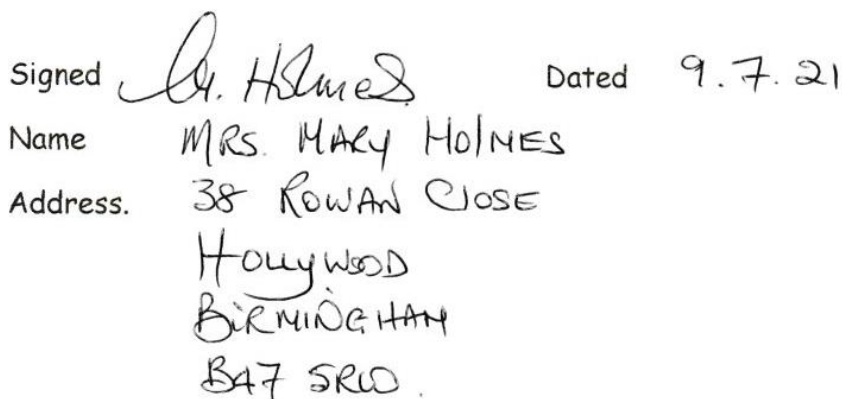 Signed M. Holmes. Dated 9.7.21
Name MRS. MARY HOLMES
Address. 38 ROWAN CLOSE
HOLLYWOOD
BIRMINGHAM
B47 5RW.